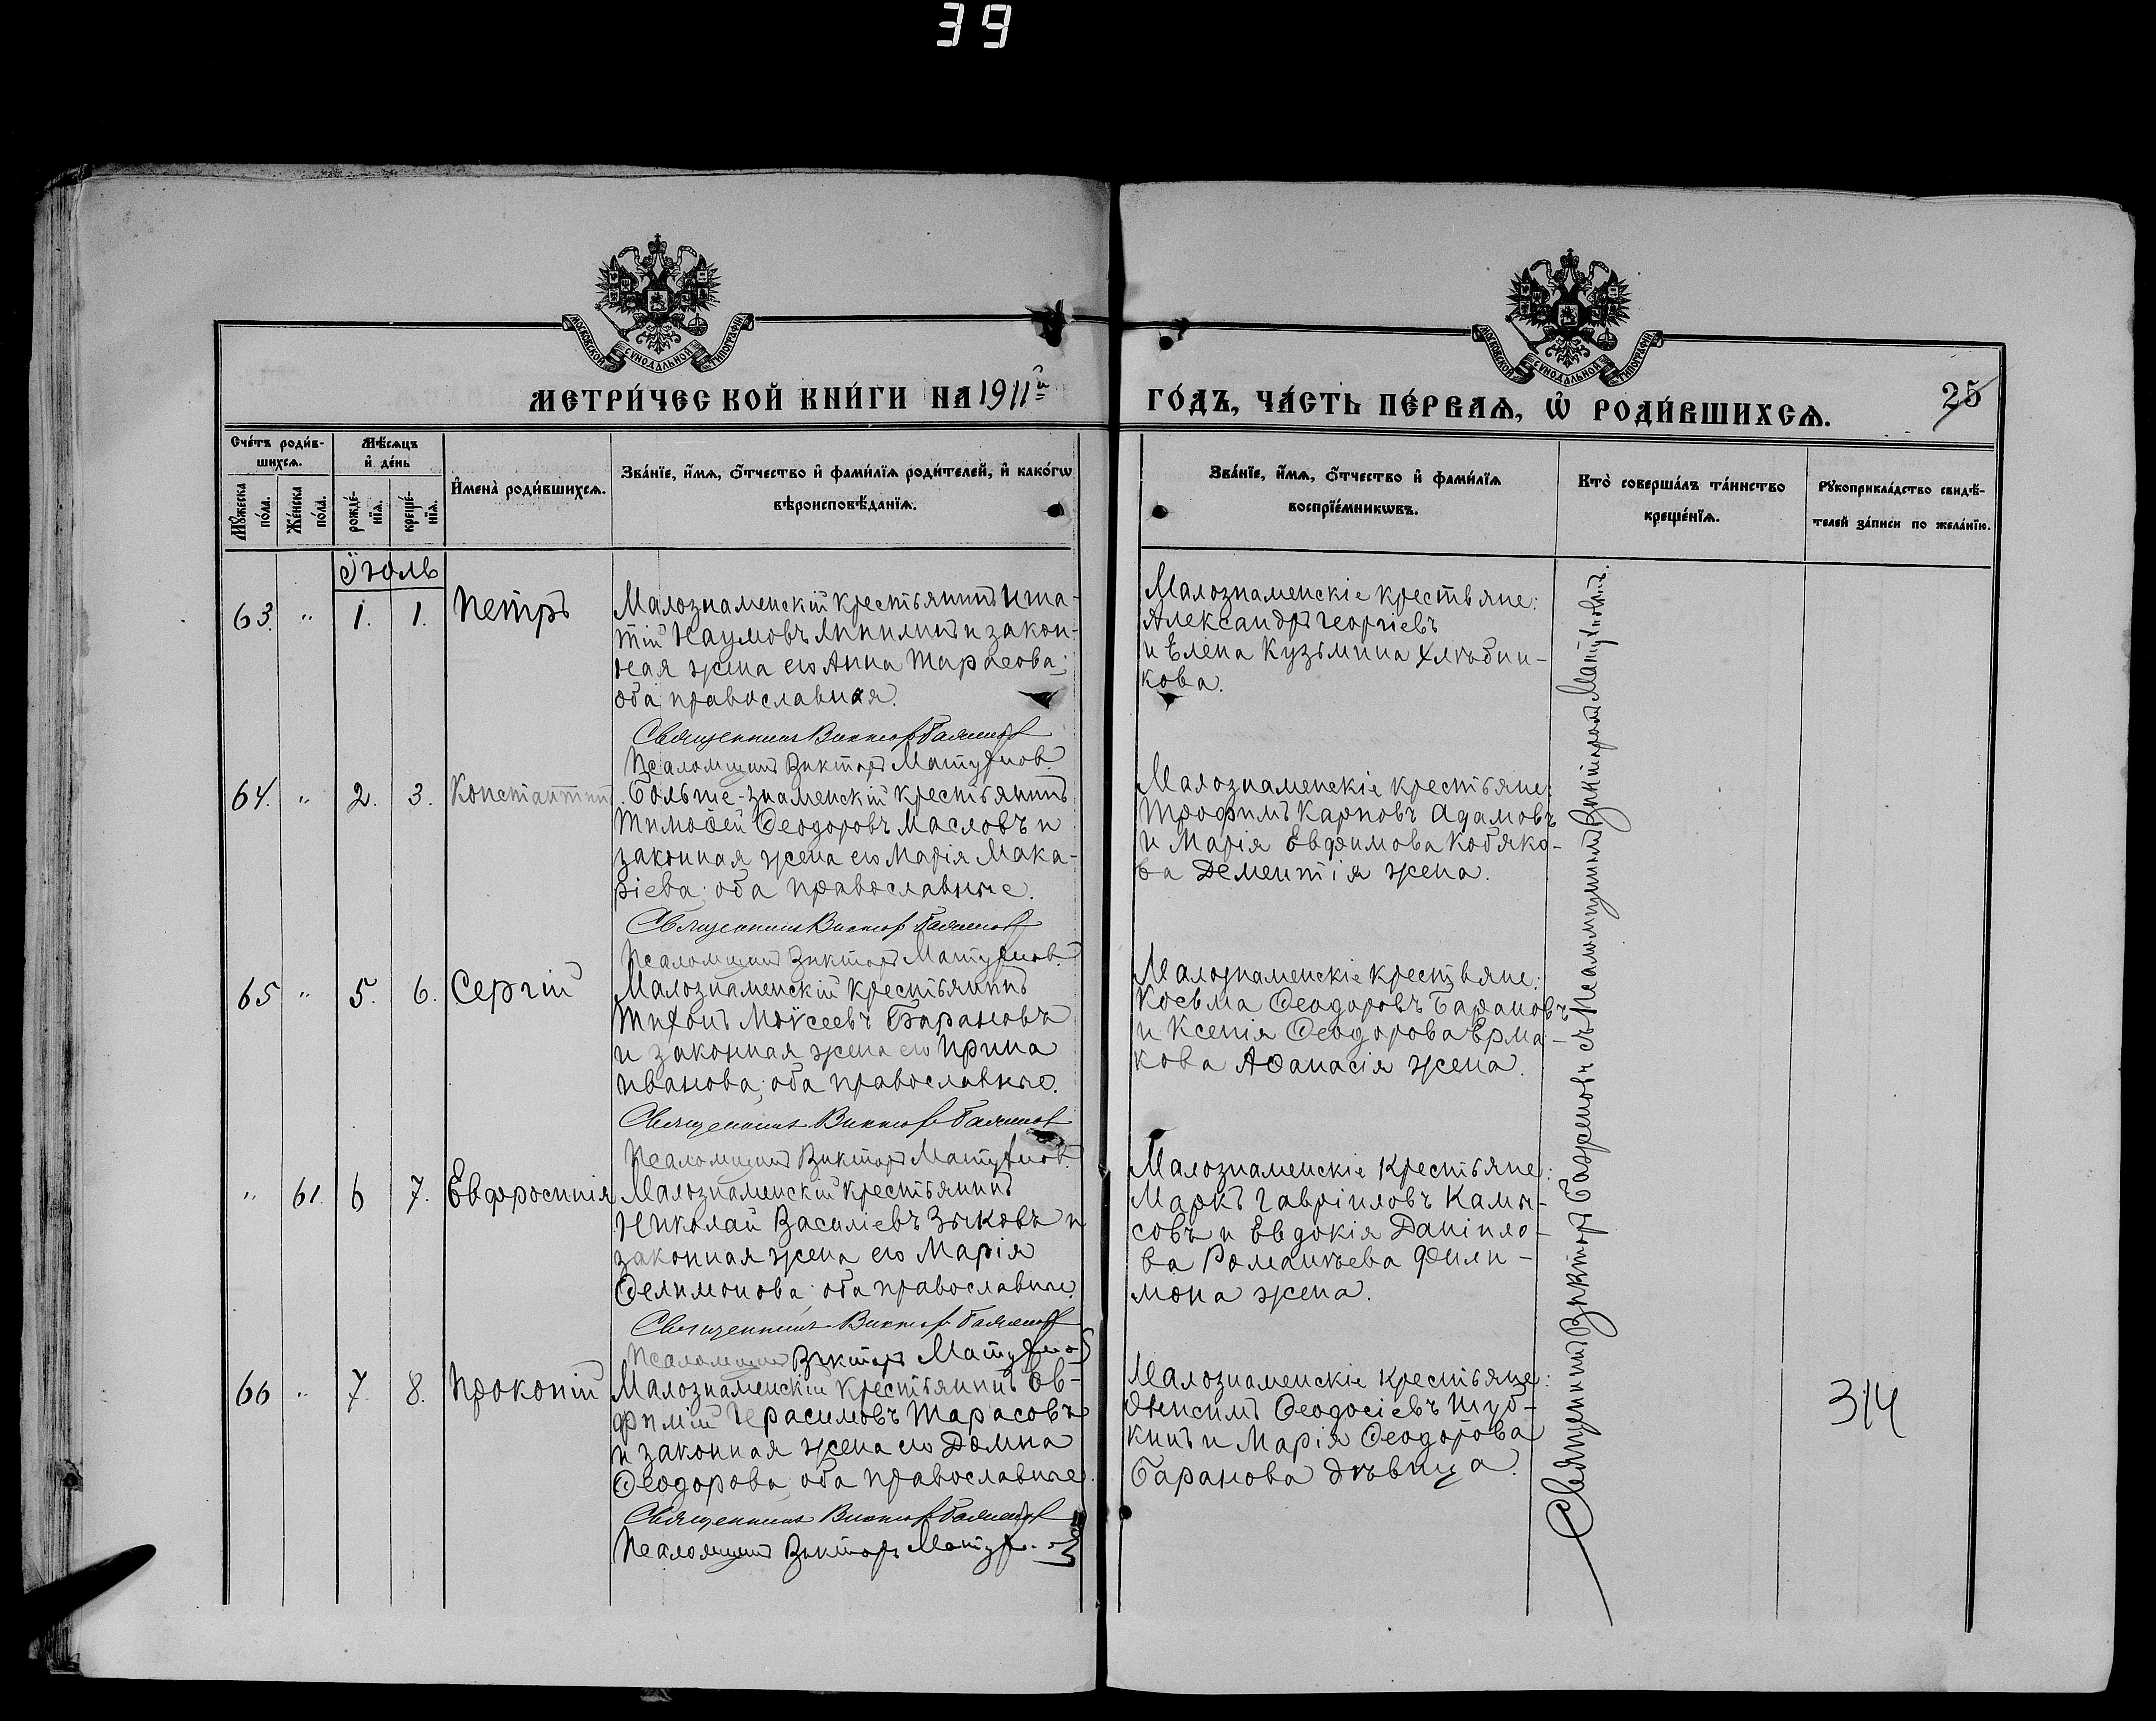 39
МОСКОВСКОЙ СѴНОДАЛЬНОЙ ТИПОГРАФІИ
МОСКОВСКОЙ СѴНОДАЛЬНОЙ ТИПОГРАФІИ
МЕТРИ́ЧЕСКОЙ КНИ́ГИ НА 1911й
ГО́ДЪ, ЧА́СТЬ ПЕ́РВАѦ, Ѡ҆ РОДИ́ВШИХСѦ.
25
Сче́тъ роди́в-
шихсѧ.
Мꙋ́жеска по́ла.
Же́нска по́ла.
Мѣ́сѧцъ
и҆ де́нь
рожде́-
нїѧ.
креще́-
нїѧ.
И҆мена̀ роди́вшихсѧ.
Зва́нїе, и҆́мѧ, ѻ҆́тчество и҆ фами́лїѧ роди́телей, и҆ како́гѡ
вѣроисповѣ́данїѧ.
Зва́нїе, и҆́мѧ, ѻ҆́тчество и҆ фами́лїѧ
воспрїе́мникѡвъ.
Кто̀ соверша́лъ та́инство
креще́нїѧ.
Рꙋкоприкла́дство свидѣ́-
телей за́писи по жела́нїю.
Іюль
63. " 1. 1. Петръ
Малознаменскій крестьянинъ Ипа-
тій Наумовъ Аникинъ и закон-
ная жена его Анна Тарасова;
оба православная.
Священникъ Викторъ Баженовъ
Псаломщикъ Викторъ Матухновъ.
Малознаменскіе крестьяне:
Александръ Георгіевъ
и Елена Кузьмина Хлѣбни-
кова.
64. " 2. 3. Константинъ
Больше-знаменскій крестьянинъ
Тимоѳей Ѳеодоровъ Масловъ и
законная жена его Марія Мака-
ріева; оба православные.
Священникъ Викторъ Баженовъ
Псаломщикъ Викторъ Матухновъ.
Малознаменскіе крестьяне:
Трофимъ Карповъ Адамовъ
и Марія Евфимова Кобяко-
ва Дементія жена.
65 " 5. 6. Сергій
Малознаменскій крестьянинъ
Тихонъ Моѵсеевъ Барановъ
и законная жена его Ирина
Иванова; оба православные.
Священникъ Викторъ Баженовъ
Псаломщикъ Викторъ Матухновъ.
Малознаменскіе крестьяне:
Косьма Ѳеодоровъ Барановъ
и Ксенія Ѳеодорова Ерма-
кова Аѳанасія жена.
" 61. 6 7. Евфросинія
Малознаменскій крестьянинъ
Николай Василіевъ Зыковъ и
законная жена его Марія
Ѳелимонова; оба православные.
Священникъ Викторъ Баженовъ
Псаломщикъ Викторъ Матухновъ
Малознаменскіе крестьяне:
Маркъ Гавріиловъ Камы-
совъ и Евдокія Даніило-
ва Романѣева Фили-
мона жена.
66 " 7. 8. Прокопій
Малознаменскій крестьянинъ Ев-
фимій Герасимовъ Тарасовъ
и законная жена его Домна
Ѳеодорова; оба православные.
Священникъ Викторъ Баженовъ
Псаломщикъ Викторъ Матухновъ
Малознаменскіе крестьяне:
Онисимъ Ѳеодосіевъ Шуб-
кинъ и Марія Ѳеодорова
Баранова дѣвица.
Священникъ Викторъ Баженовъ съ Псаломщикомъ Викторомъ Матухновымъ.
314